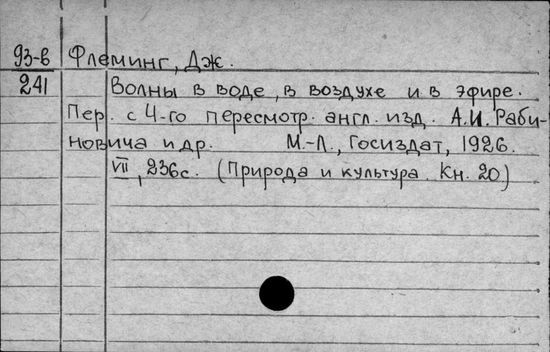 93-в Флеминг, Дж.
241 Волны в воде, в воздухе и в эфире.
Пер. с 4-го пересмотр. англ. изд. А.И. Раби-
новича и др. М.-Л., Госиздат, 1926.
VII, 236 с. (Природа и культура. Кн. 20)